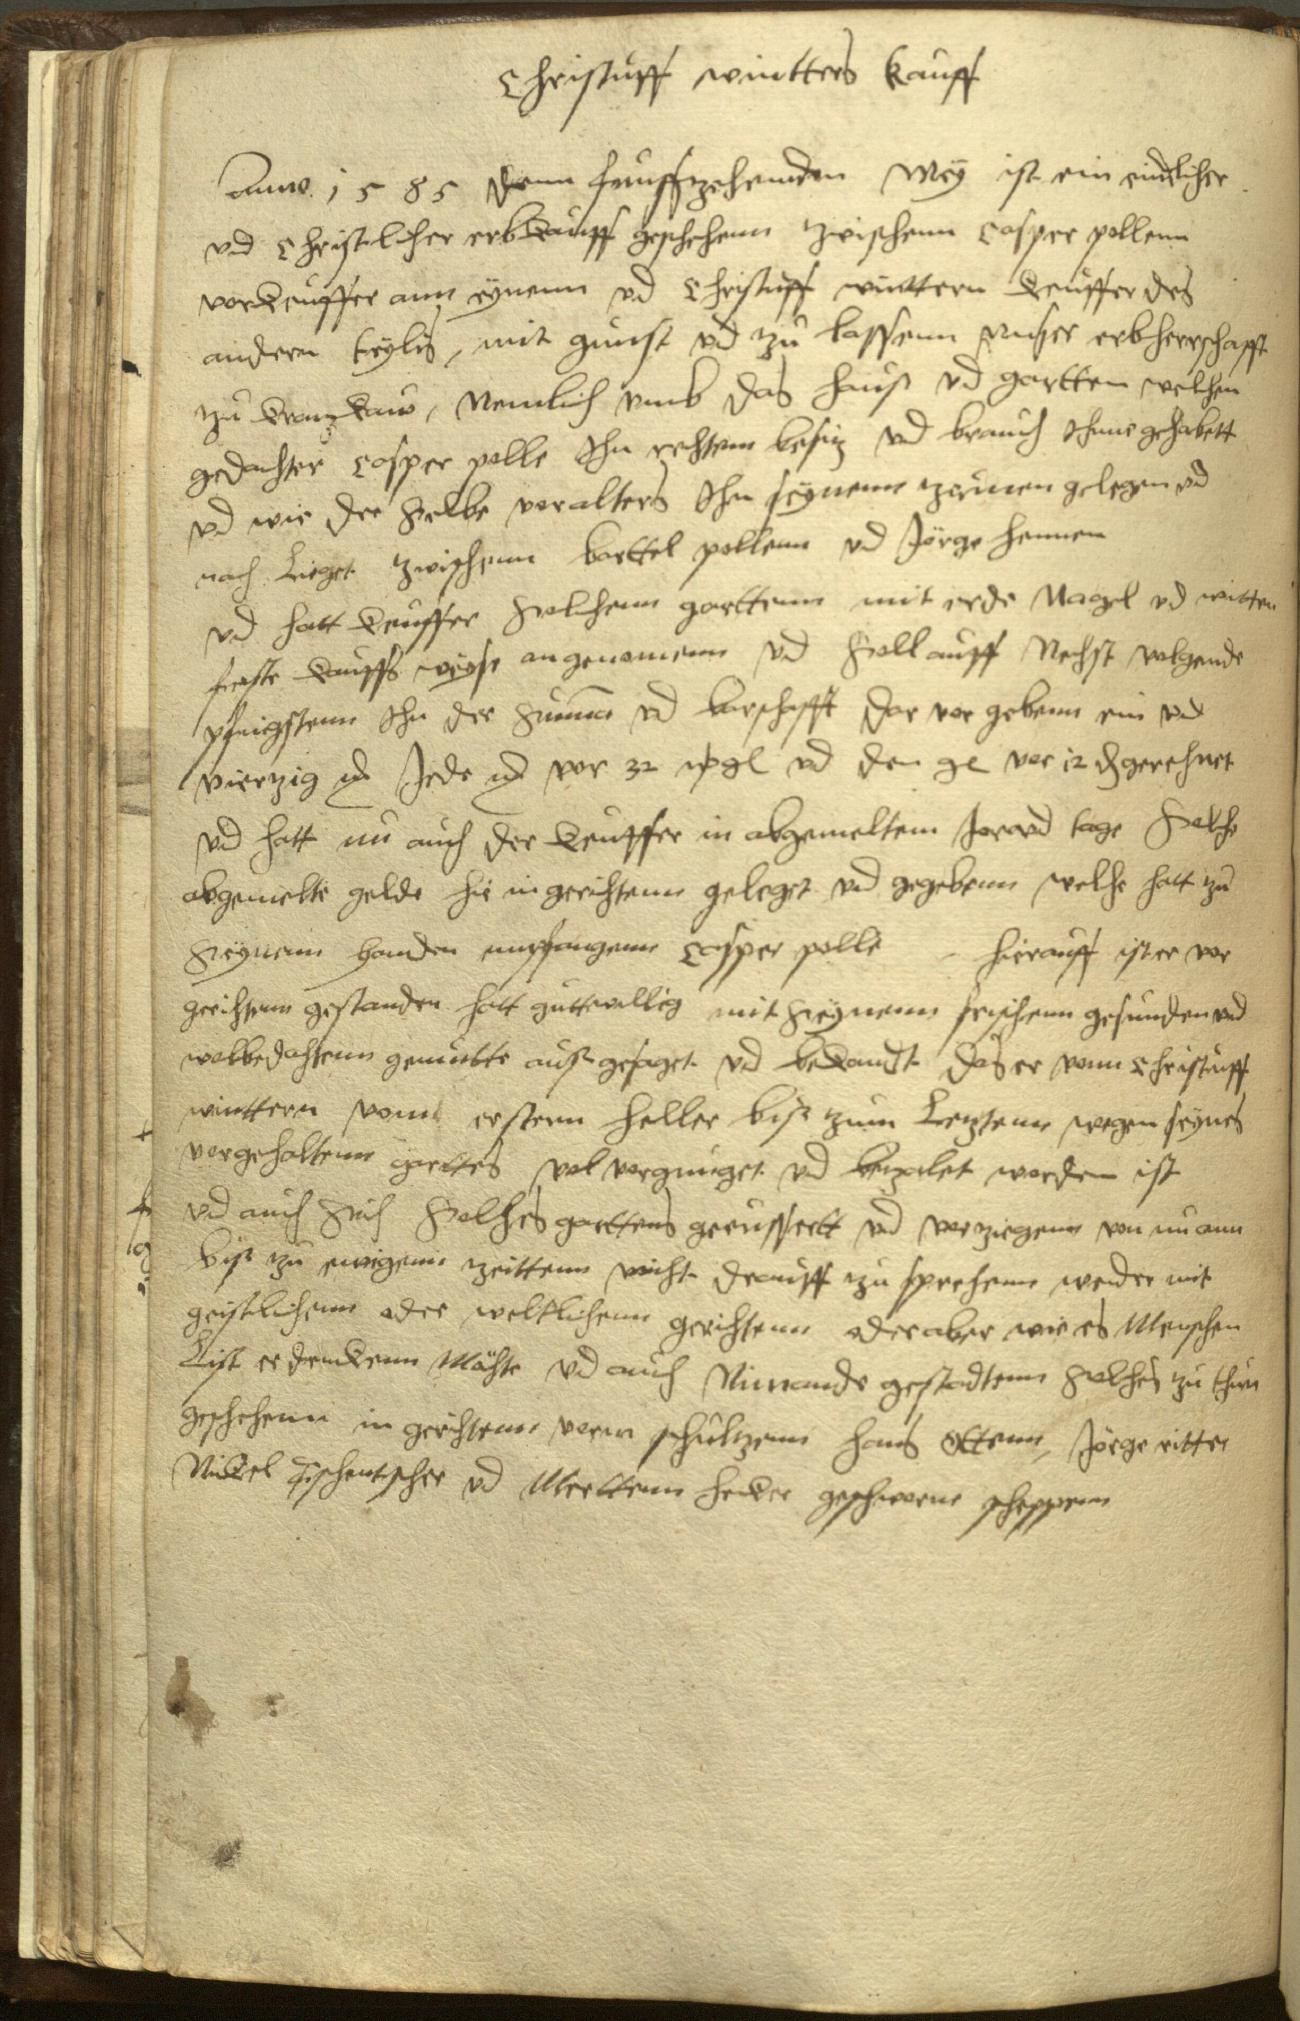 Christuff wintters kauff
Anno. 1585 denn funffzehenden Mey ist ein eindlicher
vnd Christlicher erbkauff geschehenn zwischenn Casper pollenn
vorkeuffer ann eynenn vnd Christuff winttern keuffer des
andern teylis, mit gunst vnd zu lassenn vnser erbherrschafft
zu, Nemlich vmb das hauß vnd gartten welchen
gedachter Casper polle Ihn rechtem besitz vnd brauch Ihnne gehabett
vnd wie der selbe vor alters Ihn seynenn zeunen gelegen vnd
nach lieget zwischenn barttel pollenn vnd Jörge hennen
vnd hatt keuffer solchenn garttenn mit erde Nagel vnd
kauffs weyse angenomenn vnd soll auff Nechst volgende
pfingstenn Ihn der Summa vnd barschafft dar vor gebenn ein vnd
vierzig Jede vor 32 vnd den gl vor 12 gerechnet
vnd hatt nu auch der keuffer in abgemeltem Jar vnd tage solche
abgemelte gelde hie in gerichtenn geleget vnd gegebenn welche hatt zu
seynenn handen empfangenn Casper polle hierauff ist er vor
gerichtenn gestanden hatt guttwillig mit seynenn frischenn gesunden vnd
wolbedachtenn gemutte auß gesaget vnd bekandt das er vonn Christuff
winttern vonn erstenn heller biß zum letztenn wegen seynes
vorgehaltenn garttes wol vorgnuget vnd bezalet worden ist
vnd auch sich solches garttens geeussertt vnd vorziegenn von nu ann
biß zu ewigenn zeittenn nicht drauff zu sprechenn weder mit
geistlichenn oder weltlichenn gerichtenn oder aber wie es Menschen
list erdenckenn Möchte vnd auch Nimands gestadtenn solches zu thun
geschehenn in gerichtenn vorm schultzenn hans Ottenn, Jörge ritter
Nickel vnd Merttenn hencker geschworne scheppenn